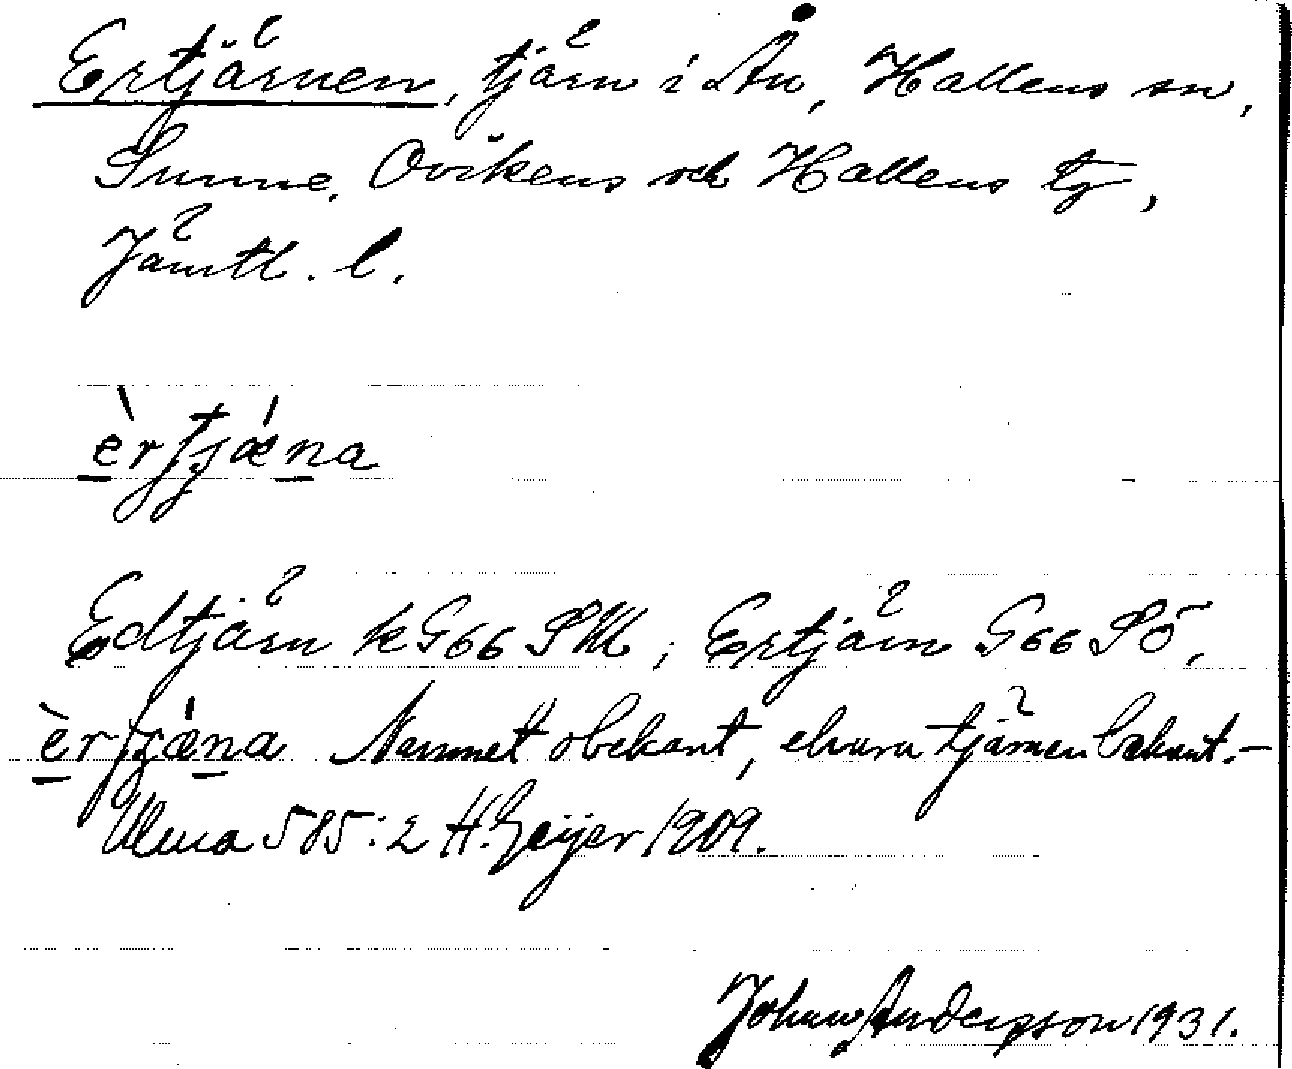 Ertjärnen, tjärn i Ån, Hallens sn,
Sunne, Ovikens och Hallens tg,
Jämtl. l.
èrʃtjǽna
Edtjärn kG66 SIII; Ertjärn G66 SÖ,
èrʃtjǽna Namnet obekant, ehuru tjärnen bekant.—
Ulma 585:2 H. Geijer 1909.
Johan Anderson 1931.